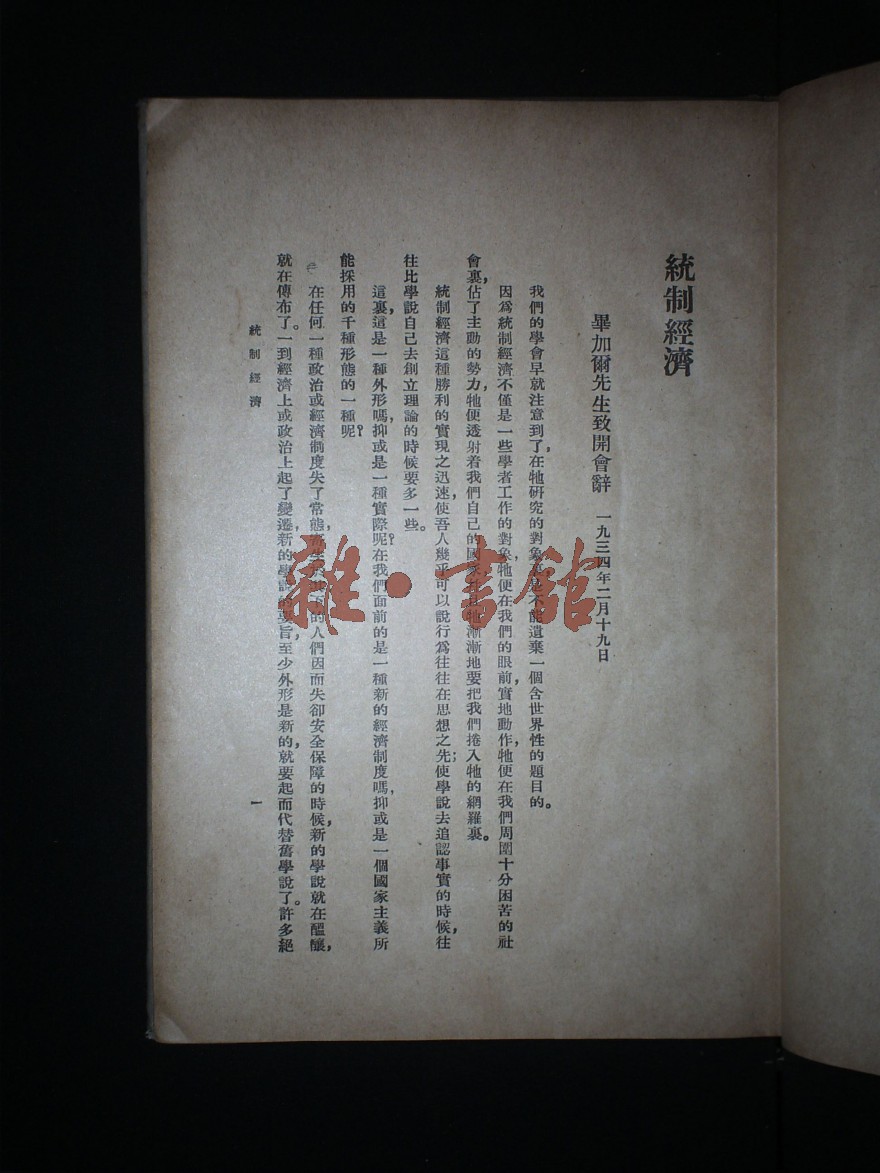 統制經濟
畢加爾先生致開會辭 一九三四年二月十九日
我們的學會早就注意到了，在牠研究的對象裏是不能遺棄一個含世界性的題目的。
因爲統制經濟不僅是一些學者工作的對象，牠便在我們的眼前，實地動作，牠便在我們周圍十分困苦的社
會裏，佔了主動的勢力，牠便透射着我們自己的國家，並且牠漸漸地要把我們捲入牠的網羅裏。
統制經濟這種勝利的實現之迅速，使吾人幾乎可以說行爲往往在思想之先；使學說去追認事實的時候，往
往比學說自己去創立理論的時候要多一些。
這裏，這是一種外形嗎，抑或是一種實際呢？在我們面前的是一種新的經濟制度嗎，抑或是一個國家主義所
能採用的千種形態的一種呢？
在任何一種政治或經濟制度失了常態，寄生於其下的人們因而失卻安全保障的時候，新的學說就在醞釀，
就在傳布了。一到經濟上或政治上起了變遷，新的學說的要旨，至少外形是新的，就要起而代替舊學說了。許多絕
統制經濟
一
雜·書館